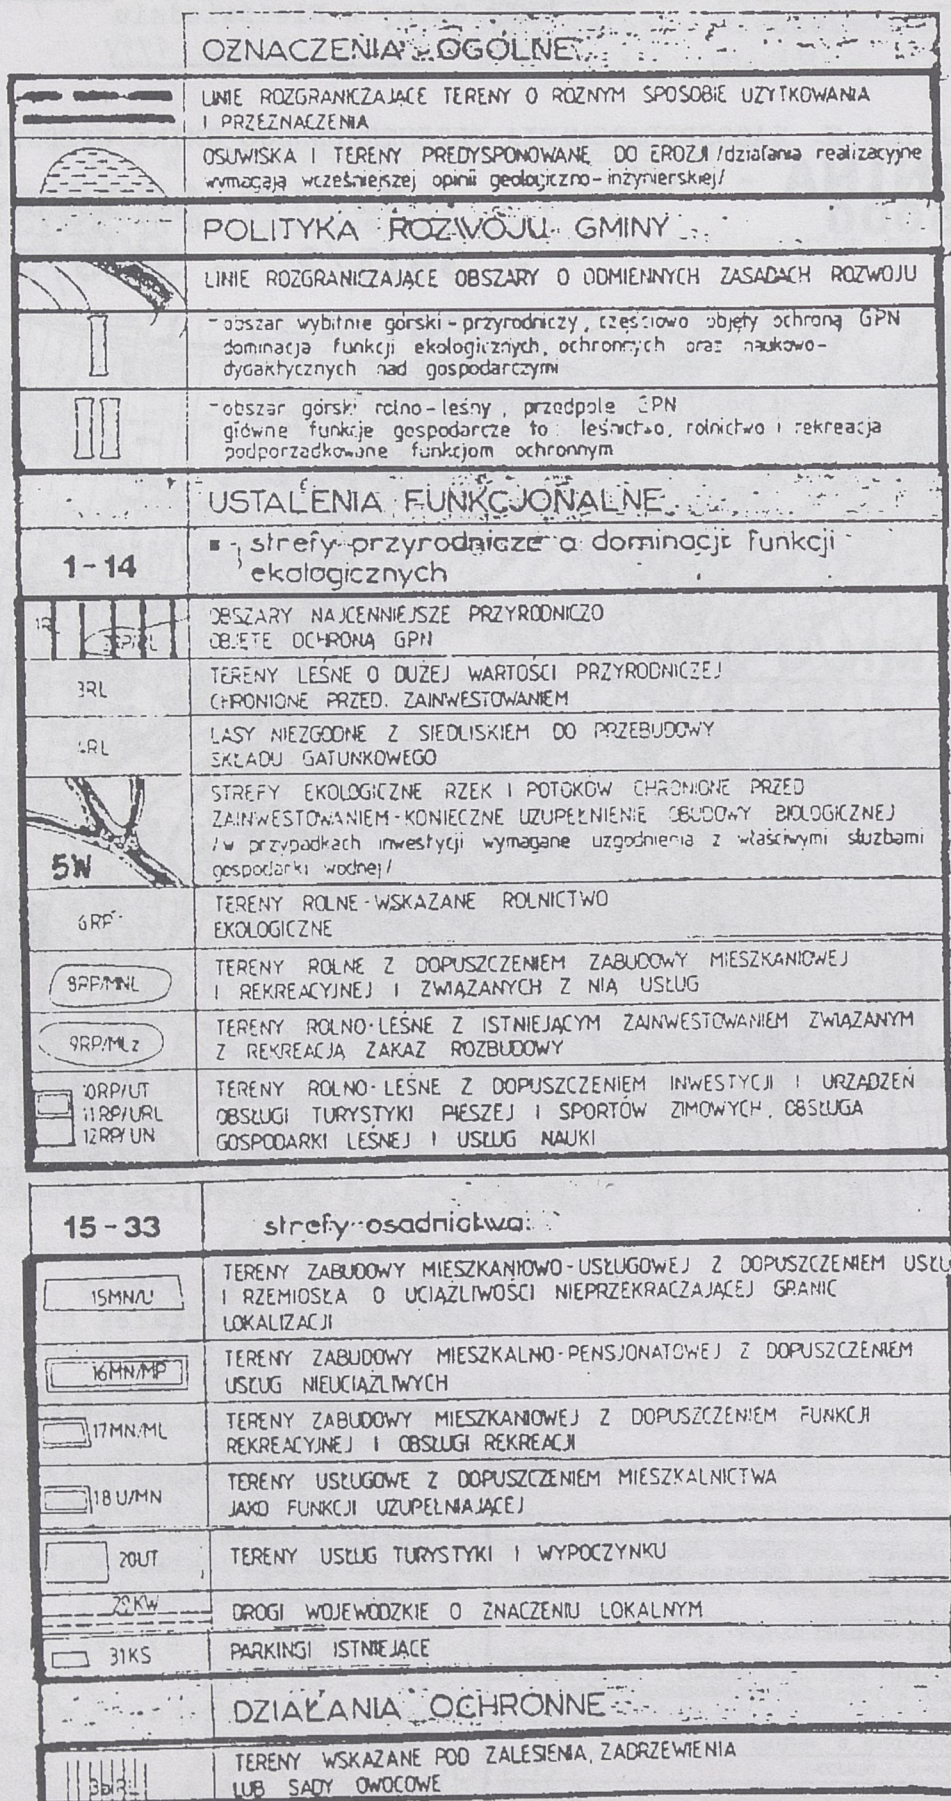 OZNACZENIA OGÓLNE
LINIE ROZGRANICZAJĄCE TERENY O RÓŻNYM SPOSOBIE UŻYTKOWANIA
I PRZEZNACZENIA
OSUWISKA I TERENY PREDYSPONOWANE DO EROZJI /działania realizacyjne
wymagają wcześniejszej opinii geologiczno-inżynierskiej/
POLITYKA ROZWOJU GMINY
LINIE ROZGRANICZAJĄCE OBSZARY O ODMIENNYCH ZASADACH ROZWOJU
I
- obszar wybitnie górski - przyrodniczy, częściowo objęty ochroną GPN
dominacja funkcji ekologicznych, ochronnych oraz naukowo-
dydaktycznych nad gospodarczymi
II
- obszar górski rolno-leśny, przedpole GPN
główne funkcje gospodarcze to: leśnictwo, rolnictwo i rekreacja
podporządkowane funkcjom ochronnym
USTALENIA FUNKCJONALNE
1-14
- strefy przyrodnicze o dominacji funkcji
ekologicznych
OBSZARY NAJCENNIEJSZE PRZYRODNICZO
OBJĘTE OCHRONĄ GPN
3RL
TERENY LEŚNE O DUŻEJ WARTOŚCI PRZYRODNICZEJ
CHRONIONE PRZED. ZAINWESTOWANIEM
4RL
LASY NIEZGODNE Z SIEDLISKIEM DO PRZEBUDOWY
SKŁADU GATUNKOWEGO
5W
STREFY EKOLOGICZNE RZEK I POTOKÓW CHRONIONE PRZED
ZAINWESTOWANIEM-KONIECZNE UZUPEŁNIENIE OBUDOWY BIOLOGICZNEJ
/w przypadkach inwestycji wymagane uzgodnienia z właściwymi służbami
gospodarki wodnej/
6RP
TERENY ROLNE - WSKAZANE ROLNICTWO
EKOLOGICZNE
8RP/MNL
TERENY ROLNE Z DOPUSZCZENIEM ZABUDOWY MIESZKANIOWEJ
I REKREACYJNEJ I ZWIĄZANYCH Z NIĄ USŁUG
9RP/MLz
TERENY ROLNO-LEŚNE Z ISTNIEJĄCYM ZAINWESTOWANIEM ZWIĄZANYM
Z REKREACJĄ ZAKAZ ROZBUDOWY
10RP/UT
11RP/URL
12RP/UN
TERENY ROLNO-LEŚNE Z DOPUSZCZENIEM INWESTYCJI I URZĄDZEŃ
OBSŁUGI TURYSTYKI PIESZEJ I SPORTÓW ZIMOWYCH, OBSŁUGA
GOSPODARKI LEŚNEJ I USŁUG NAUKI
15-33
strefy osadnictwa
15MN/U
TERENY ZABUDOWY MIESZKANIOWO-USŁUGOWEJ Z DOPUSZCZENIEM USŁU
I RZEMIOSŁA O UCIĄŻLIWOŚCI NIEPRZEKRACZAJĄCEJ GRANIC
LOKALIZACJI
16MN/MP
TERENY ZABUDOWY MIESZKALNO-PENSJONATOWEJ Z DOPUSZCZENIEM
USŁUG NIEUCIĄŻLIWYCH
17MN/ML
TERENY ZABUDOWY MIESZKANIOWEJ Z DOPUSZCZENIEM FUNKCJI
REKREACYJNEJ I OBSŁUGI REKREACJI
18U/MN
TERENY USŁUGOWE Z DOPUSZCZENIEM MIESZKALNICTWA
JAKO FUNKCJI UZUPEŁNIAJĄCEJ
20UT
TERENY USŁUG TURYSTYKI I WYPOCZYNKU
DROGI WOJEWÓDZKIE O ZNACZENIU LOKALNYM
31KS
PARKINGI ISTNIEJĄCE
DZIAŁANIA OCHRONNE
TERENY WSKAZANE POD ZALESIENIA, ZADRZEWIENIA
LUB SADY OWOCOWE